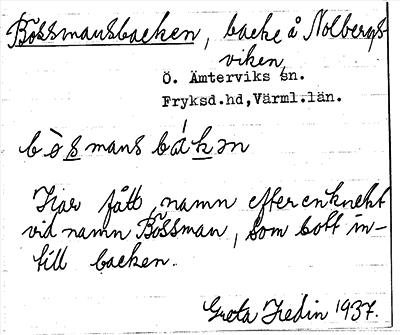 Bössmansbacken, backe å Nolbergs-
viken,
Ö. Ämterviks sn.
Fryksd.hd,Värml.län.
bòsmans bákən
Har fått namn efter en knekt
vid namn Bössman, som bott in-
till backen.
Greta Hedin 1937.